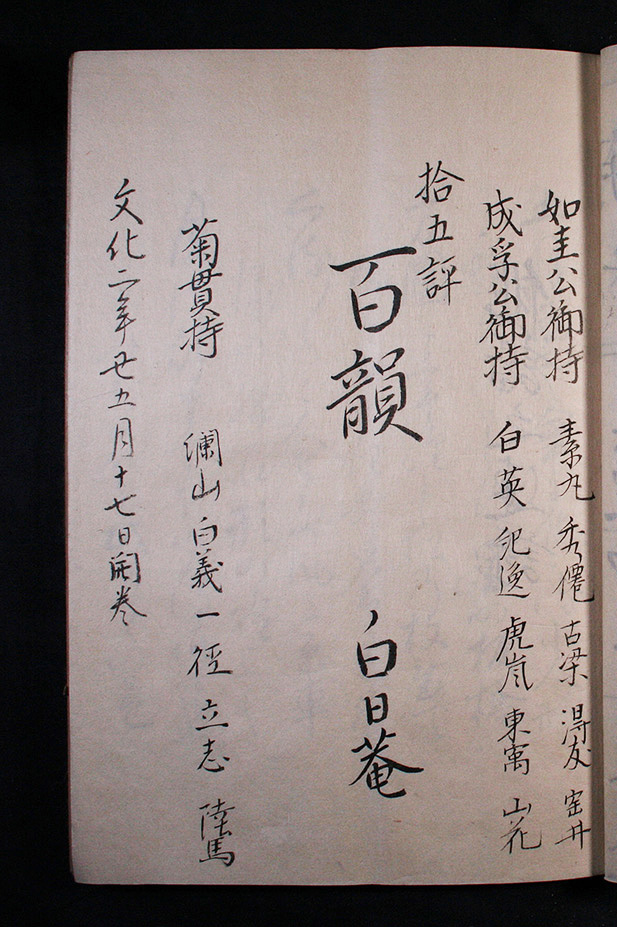 如圭公御持 素丸 秀僊 古梁 得友 宝井
成孚公御持 白英 紀逸 虎嵐 東寓 山花
拾五評
百韻 白日菴
菊貫持 瀾山 白義 一径 立志 陸馬
文化二年丑五月十七日開巻